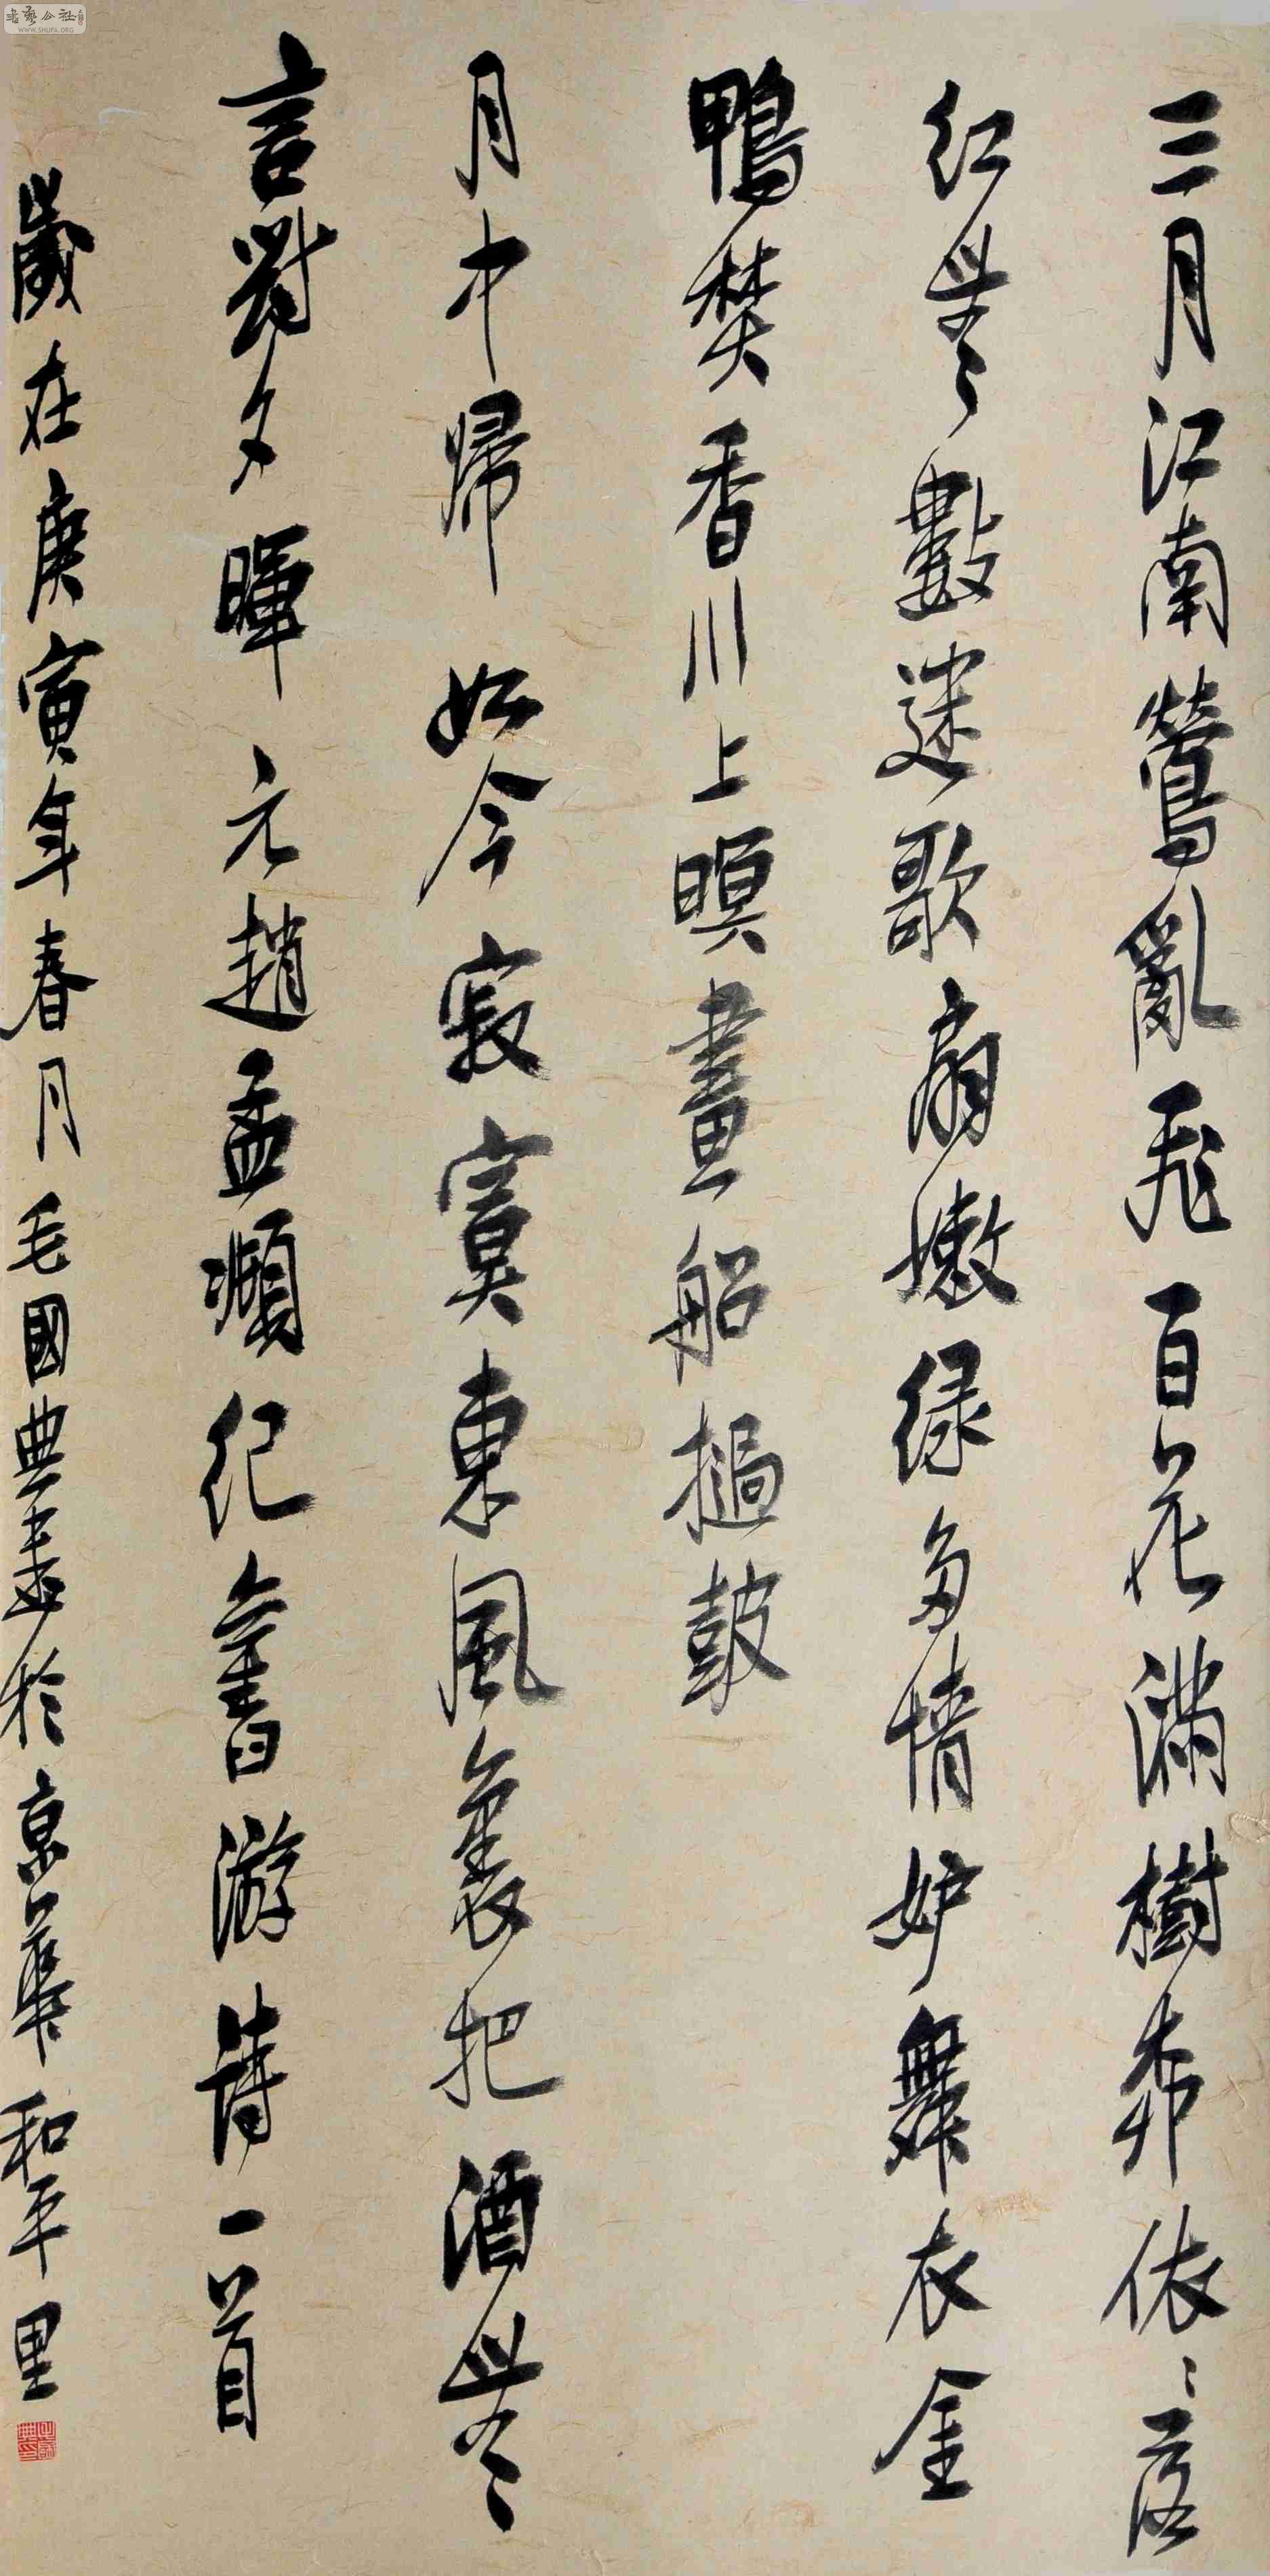 書藝公社
WWW.SHUFA.ORG
三月江南鶯亂飛百花滿樹桺依〻落
紅無數迷歌扇嫩綠多情妒舞衣金
鴨焚香川上暝畫船撾鼓
月中歸如今寂寞東風裏把酒無
言對夕暉 元趙孟頫紀舊游詩一首
歲在庚寅年春月毛國典書於京華和平里
毛國典印